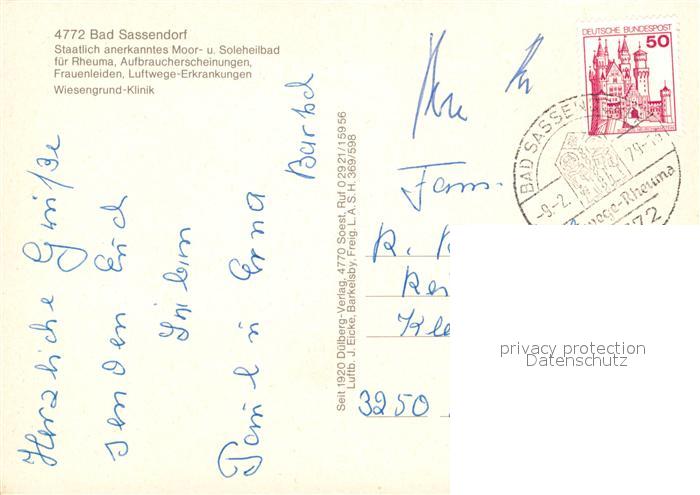 4772 Bad Sassendorf
Staatlich anerkanntes Moor- u. Soleheilbad
für Rheuma, Aufbraucherscheinungen,
Frauenleiden, Luftwege-Erkrankungen
Wiesengrund-Klinik
Herzliche Grüße
senden Euch
Paul u Erna
Seit 1920 Dülberg-Verlag, 4770 Soest, Ruf 0 29 21/1 59 56
Luftb. J. Eicke, Barkelsby, Freig. L.A.S.H. 369/598
DEUTSCHE BUNDESPOST
50
BAD SASSEN
-9.-2. 79-18
wege-Rheuma
72
Fam.
R.
3250
privacy protection
Datenschutz